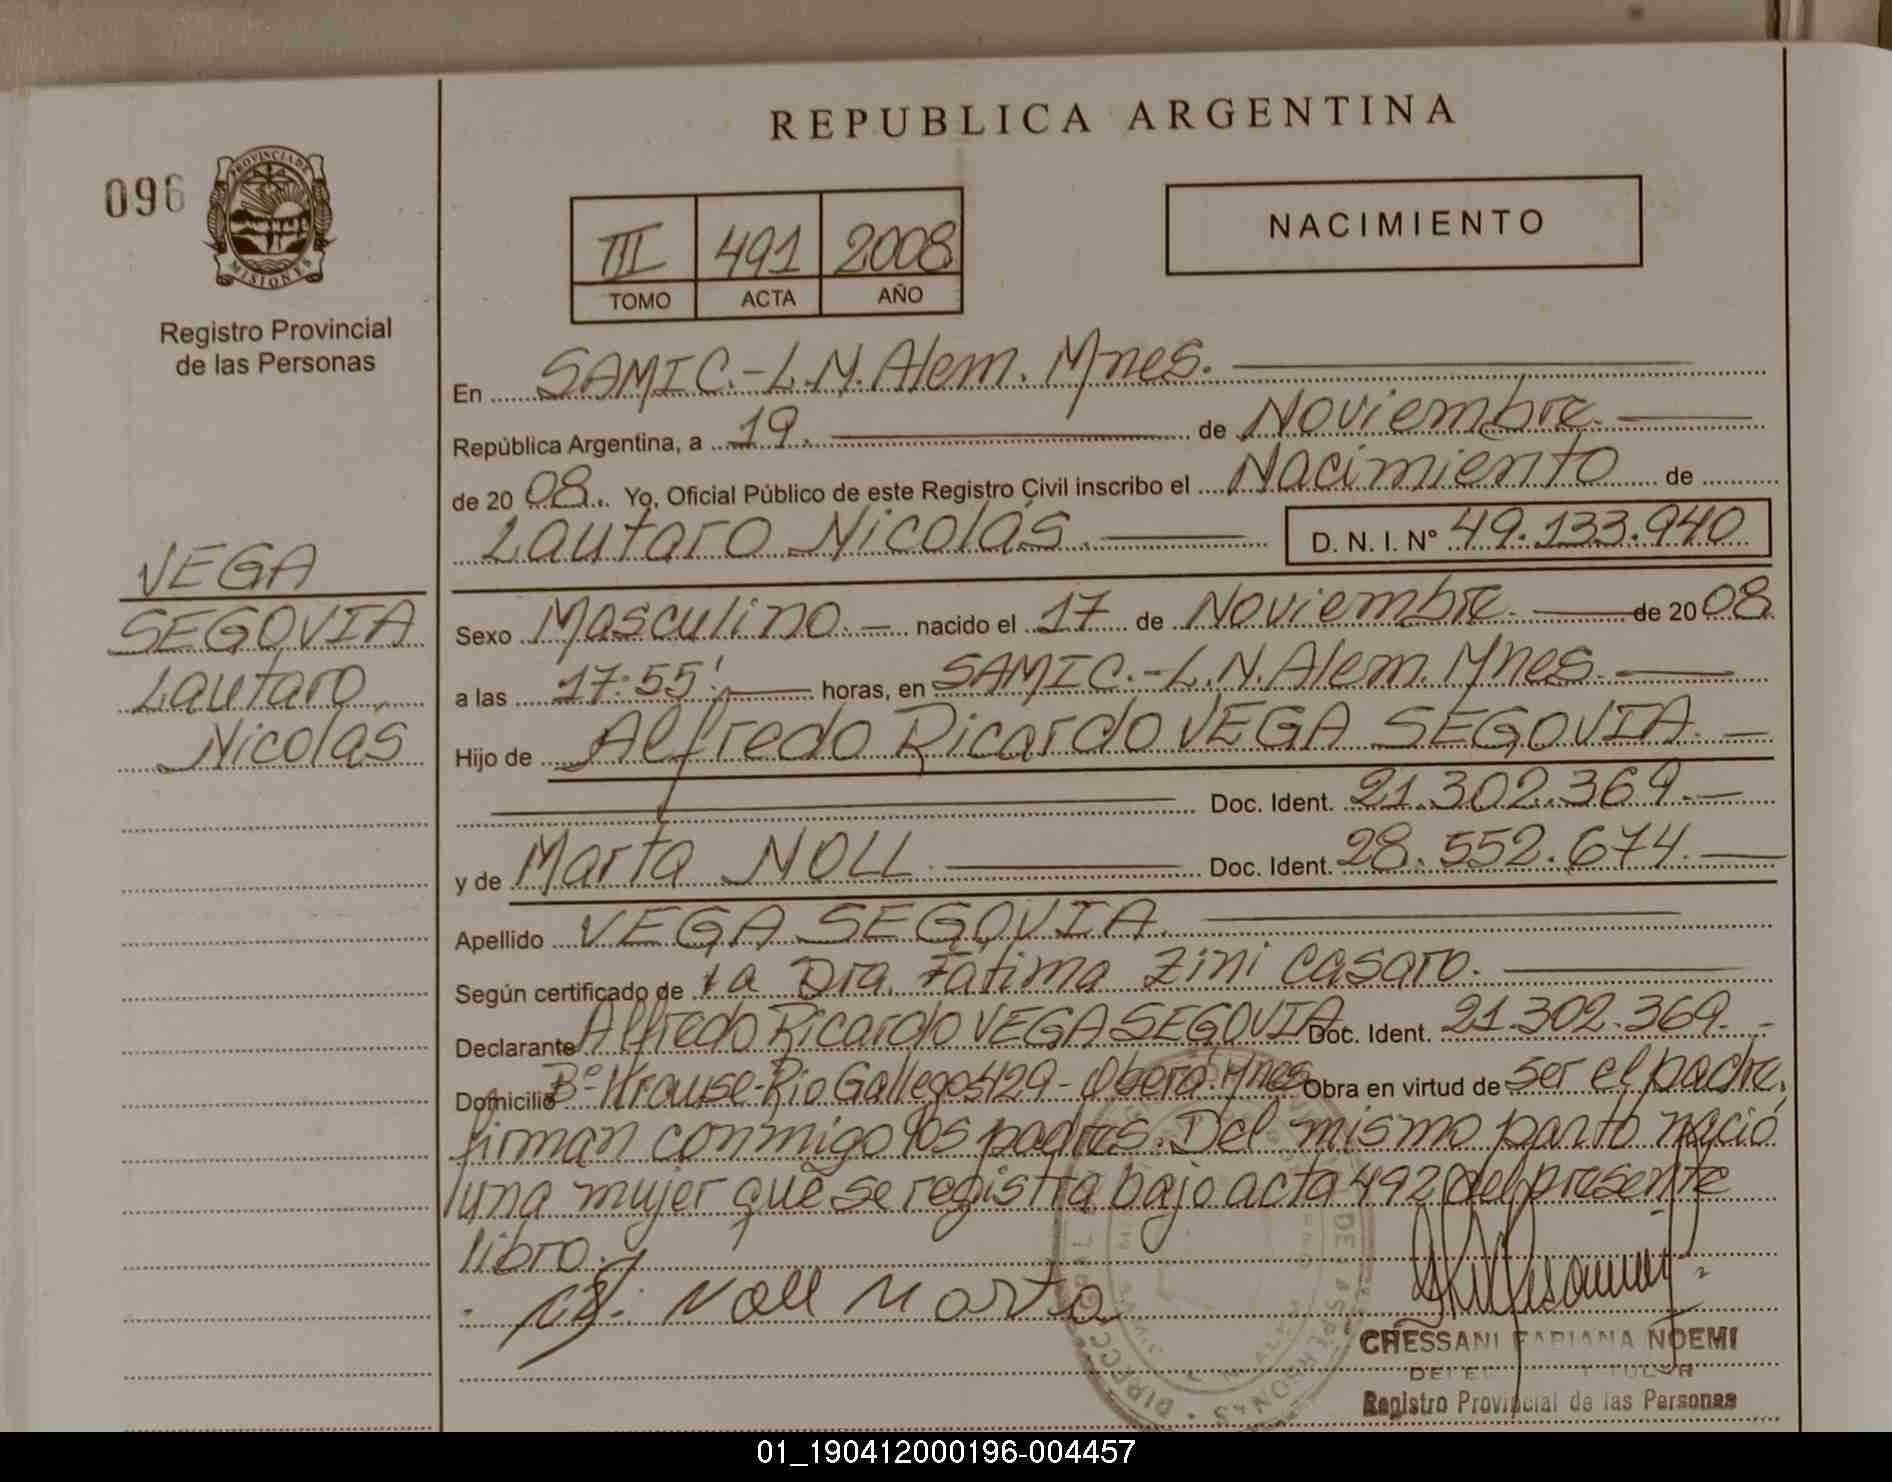 REPUBLICA ARGENTINA
096
PROVINCIA DE
MISIONES
Registro Provincial
de las Personas
III 491 2008
TOMO ACTA AÑO
NACIMIENTO
En SAMIC.-L.N.Alem. Mnes.
República Argentina, a 19. de Noviembre.
de 20 08. Yo, Oficial Público de este Registro Civil inscribo el Nacimiento de
Lautaro Nicolás. D. N. I. Nº 49.133.940
VEGA
SEGOVIA
Lautaro
Nicolás
Sexo Masculino. nacido el 17 de Noviembre. de 20 08
a las 17:55' horas, en SAMIC.-L.N.Alem. Mnes.
Hijo de Alfredo Ricardo VEGA SEGOVIA.
Doc. Ident. 21.302.369.
y de Marta NOLL Doc. Ident. 28.552.674.
Apellido VEGA SEGOVIA.
Según certificado de la Dra. Fatima Zini Casaro.
Declarante Alfredo Ricardo VEGA SEGOVIA Doc. Ident. 21.302.369.
Domicilio Bº Krause-Rio Gallegos 429-Oberá.Mnes Obra en virtud de ser el padre,
firman conmigo los padres. Del mismo parto nació
una mujer que se registra bajo acta 492 del presente
libro.
Noll Marta
CHESSANI FABIANA NOEMI
Registro Provincial de las Personas
01_190412000196-004457